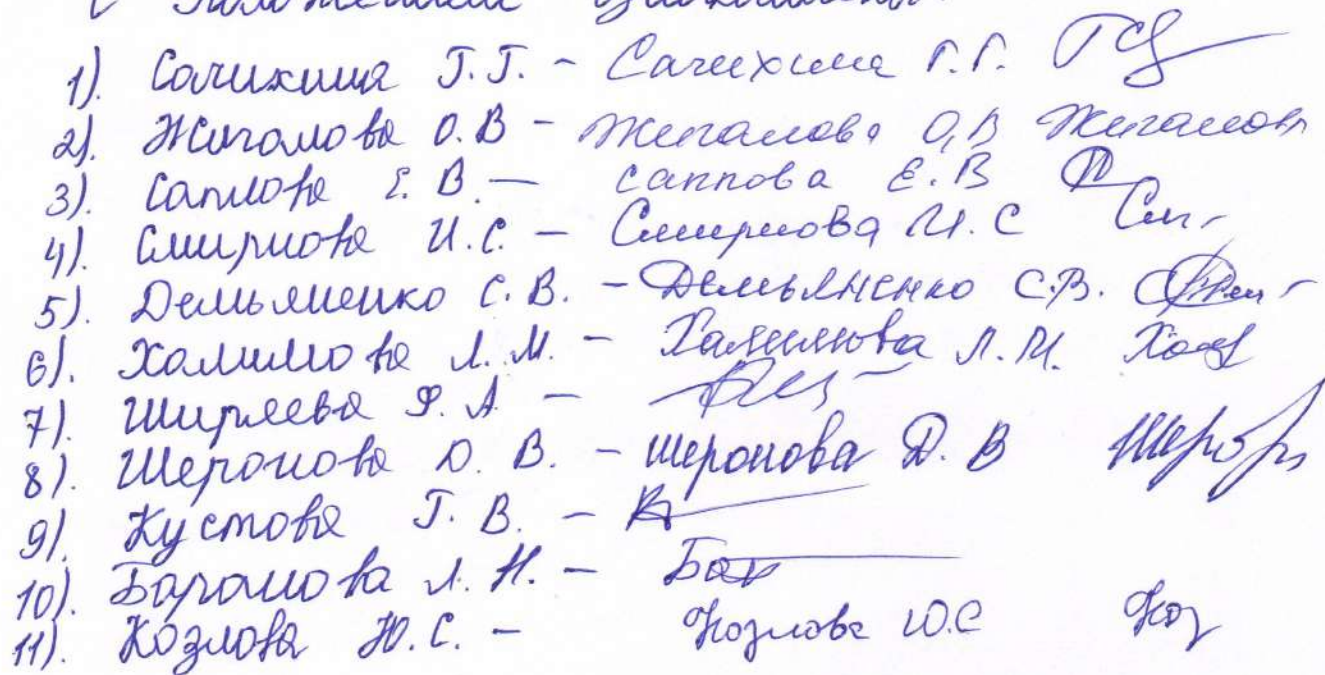 С Положением ознакомлены:
1). Сачихина Г.Г. - Сачихина Г.Г.
2). Жигалова О.В - Жигалова О,В Жигалов
3). Саппова Е.В. - саппова Е.В
4). Смирнова И.С. - Смирнова И.С См
5). Демьяненко С.В. - Демьяненко С.В.
6). Халимова Л.М. - Халимова Л.М.
7). Ширяева Ф.А -
8). Шеронова D. В. - шеронова D. В
9). Кустова Г.В. -
10). Баранова Л.Н. - Бар
11). Козлова Ю.С. - Козлова Ю.С Коз